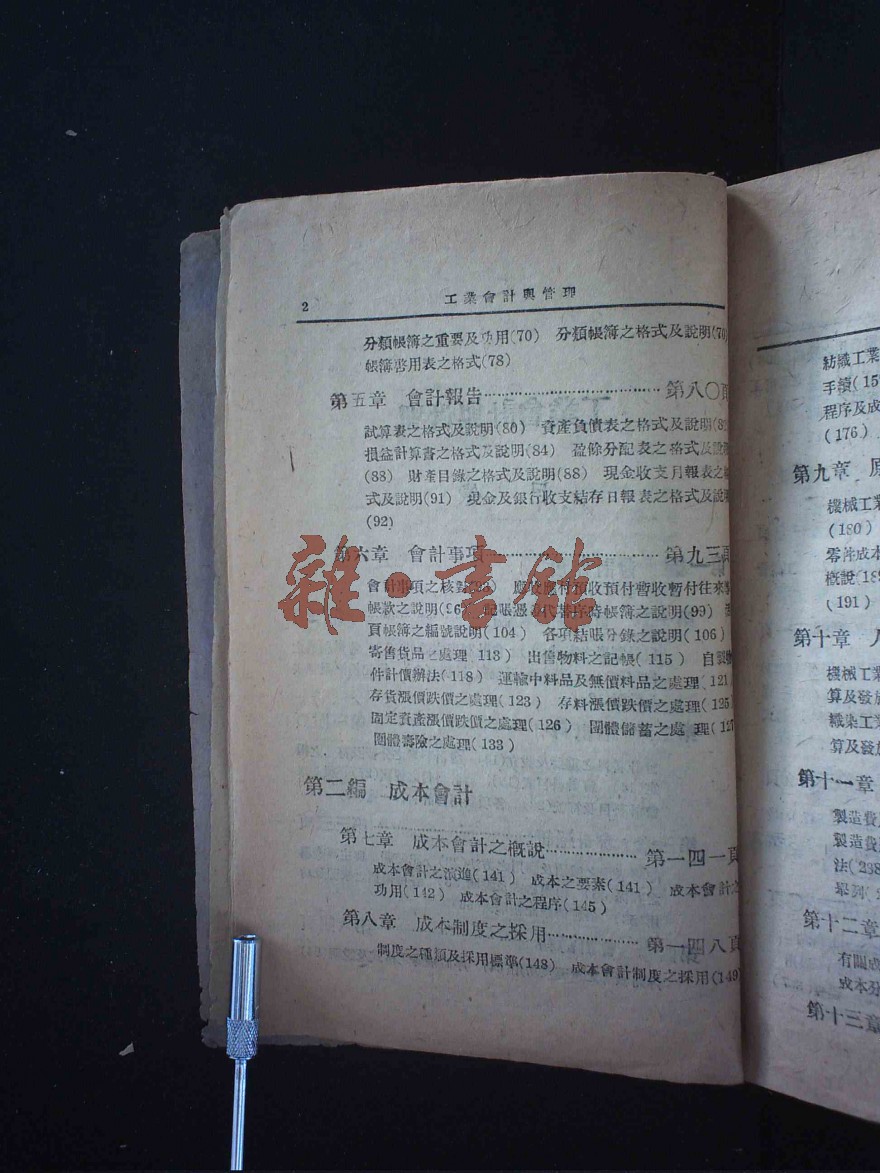 2
工業會計與管理
分類帳簿之重要及功用(70) 分類帳簿之格式及說明(70)
帳簿啓用表之格式(78)
第五章 會計報告 第八〇頁
試算表之格式及說明(80) 資產負債表之格式及說明(82
損益計算書之格式及說明(84) 盈餘分配表之格式及說明
(88) 財產目錄之格式及說明(88) 現金收支月報表之
式及說明(91) 現金及銀行收支結存日報表之格式及說明
(92)
第六章 會計事項 第九三頁
會計事項之核對 應收應付預收預付暫收暫付往來
帳款之說明(96 記賬憑 代替序時帳簿之說明(99)
頁帳簿之編號說明(104) 各項結賬分錄之說明(106)
寄售貨品之處理 113) 出售物料之記帳(115) 自製
件計價辦法(118) 運輸中料品及無價料品之處理(121)
存貨漲價跌價之處理(123) 存料漲價跌價之處理(125
固定資產漲價跌價之處理(126) 團體儲蓄之處理(127
團體壽險之處理(133)
第二編 成本會計
第七章 成本會計之概說 第一四一頁
成本會計之演進(141) 成本之要素(141) 成本會計之
功用(142) 成本會計之程序(145)
第八章 成本制度之採用 第一四八頁
制度之種類及採用標準(148) 成本會計制度之採用(149)
雜·書館
紡織工業
手續(15
程序及成
(176)
第九章
機械工業
(180)
零件成本
概說(18
(191)
第十章
機械工業
算及發放
織染工業
算及發放
第十一章
製造費
製造費
法(238
第十二章
有關成
成本分
第十三章